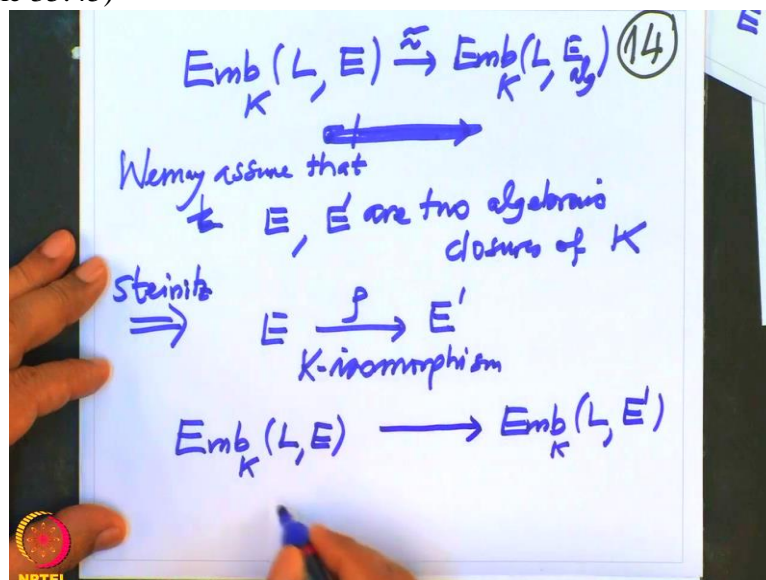 Emb_K (L, E) ⥲ Emb_K (L, E_alg) 14
We may assume that
E, E' are two algebraic
closures of K
Steinitz
⟹ E ⟶^ρ E'
K-isomorphism
Emb_K (L, E) ⟶ Emb_K (L, E')
NPTEL